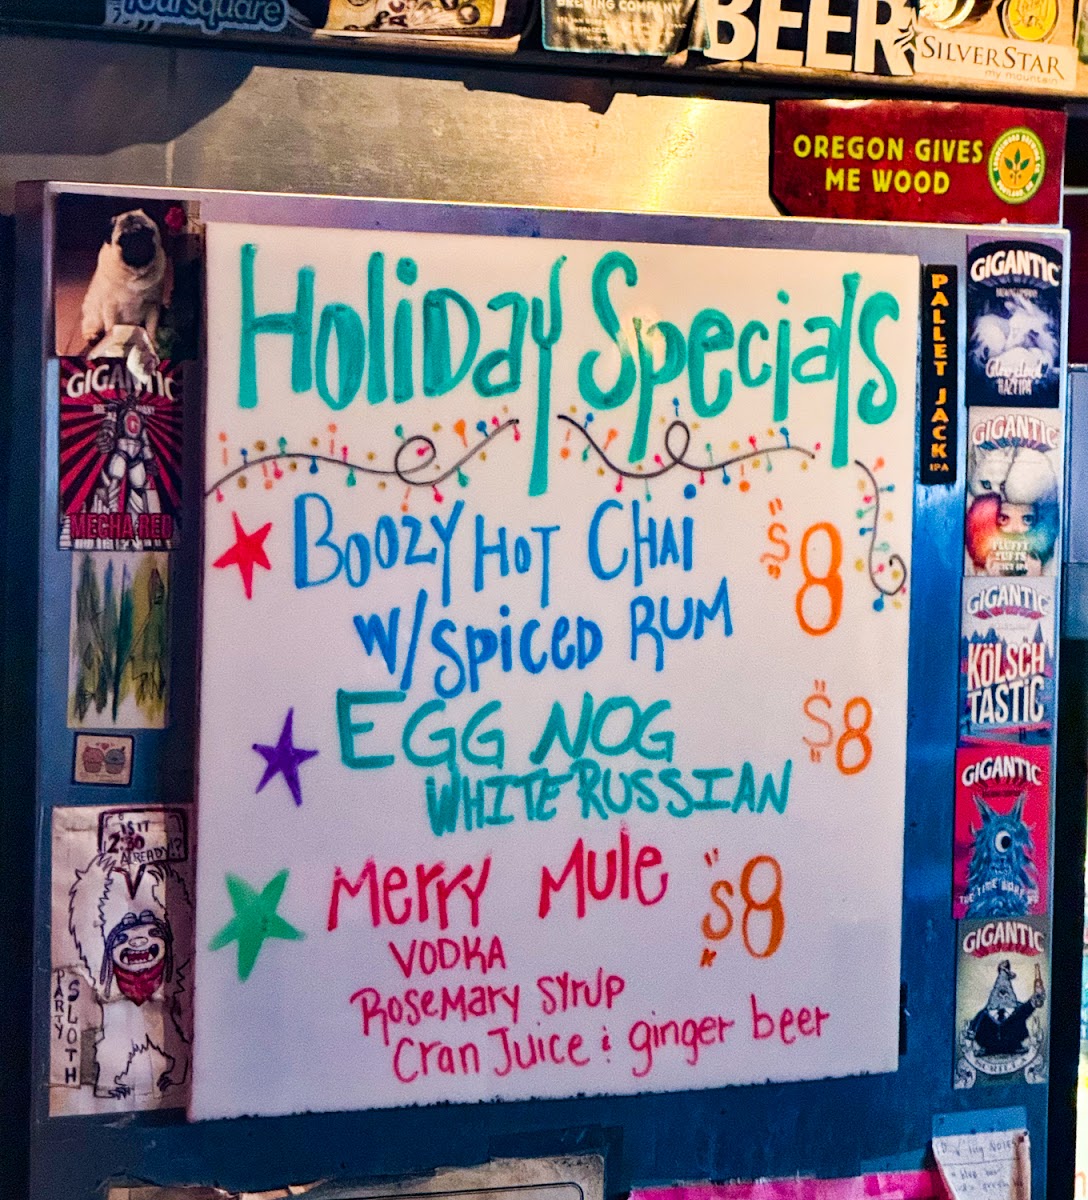 foursquare
BREWING COMPANY
BEER
SILVERSTAR
my mountain
OREGON GIVES
ME WOOD
Holiday Specials
BOOZY HOT CHAI
W/SPICED RUM
$8
EGG NOG
WHITE RUSSIAN
$8
Merry Mule
$8
VODKA
Rosemary Syrup
Cran Juice & ginger beer
GIGANTIC
MECHA RED
IS IT
2:30
ALREADY!?
PARTY
SLOTH
PALLET JACK
IPA
GIGANTIC
HAZY IPA
GIGANTIC
FLUFFY
TUFTS
JUICY IPA
GIGANTIC
KÖLSCH
TASTIC
GIGANTIC
GIGANTIC